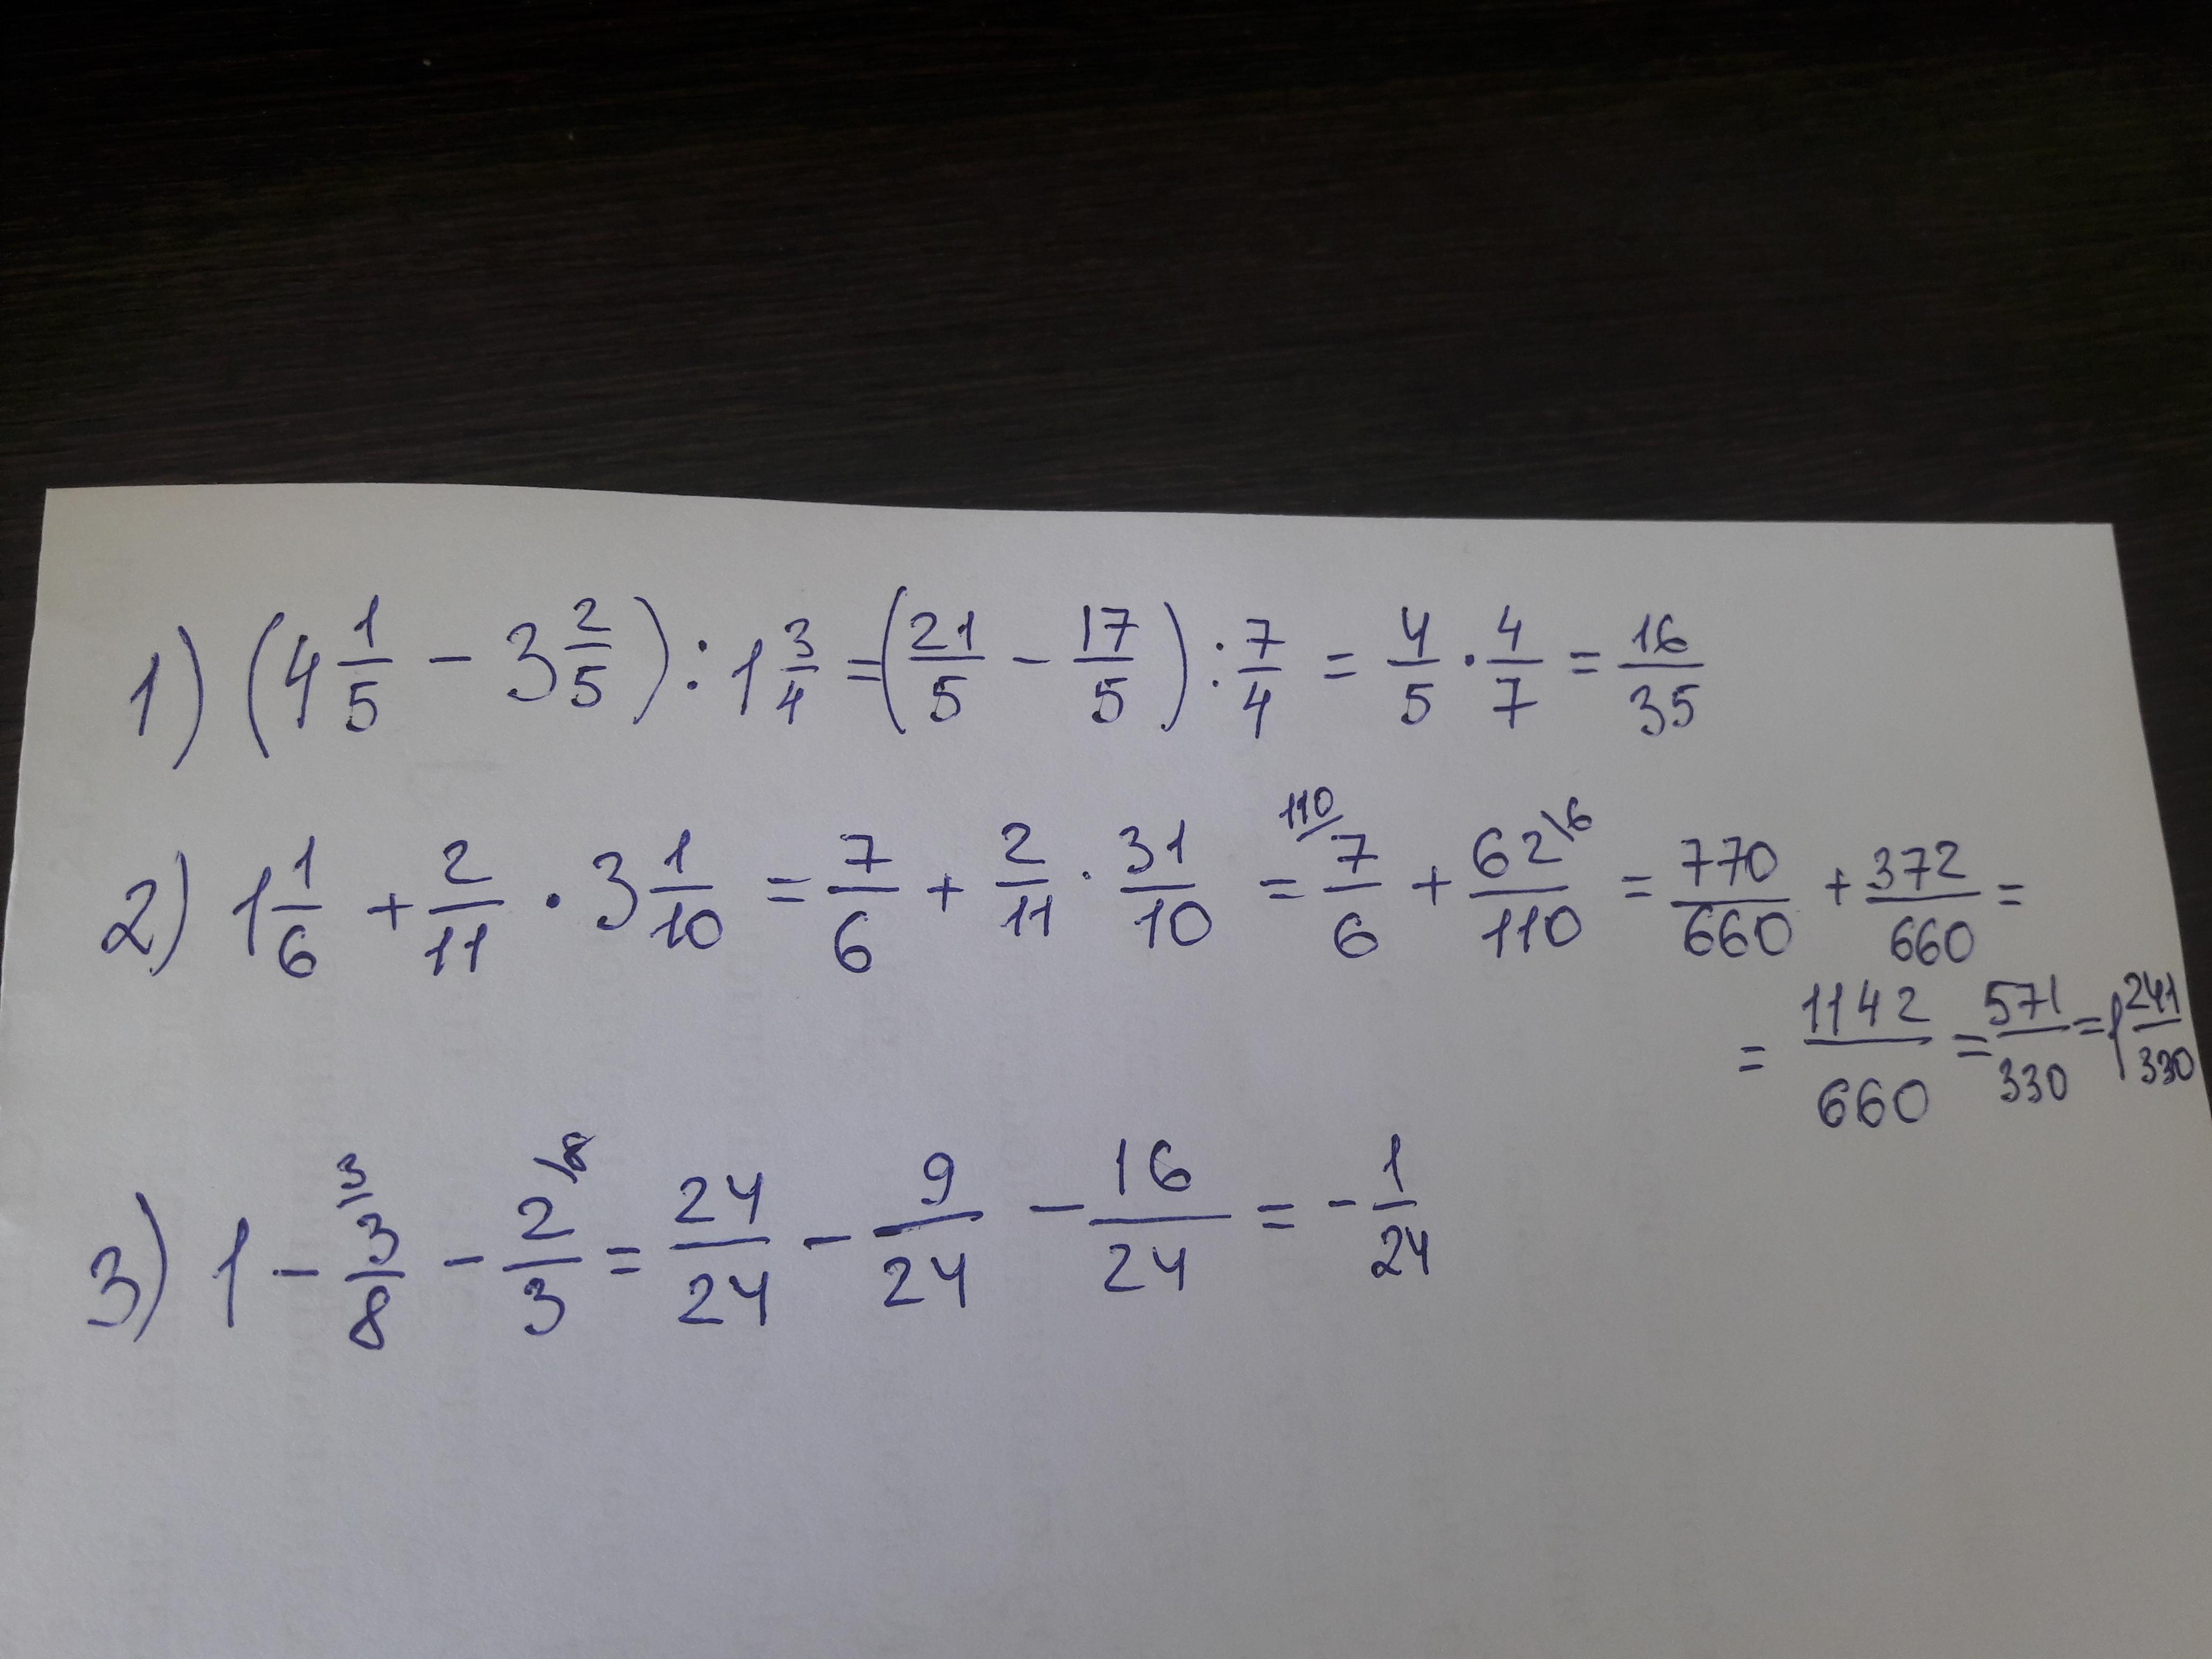 1) (4 1/5 - 3 2/5) : 1 3/4 = (21/5 - 17/5) : 7/4 = 4/5 · 4/7 = 16/35
2) 1 1/6 + 2/11 · 3 1/10 = 7/6 + 2/11 · 31/10 = 110/ 7/6 + 62/110 \6 = 770/660 + 372/660 =
= 1142/660 = 571/330 = 1 241/330
3) 1 - 3/ 3/8 - 2/3 \8 = 24/24 - 9/24 - 16/24 = - 1/24